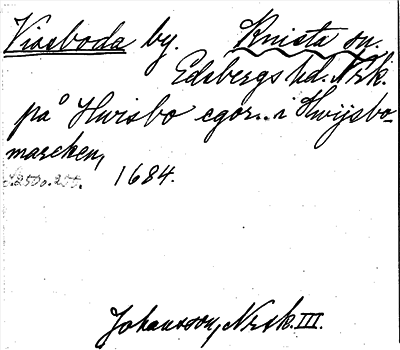 Visboda by. Knista sn.
Edsbergs hd. Nrk.
på Hwisbo egor.. i Hwijsbo-
marcken,
S.250 o. 255. 1684.
Johansson, Nrsk. III.